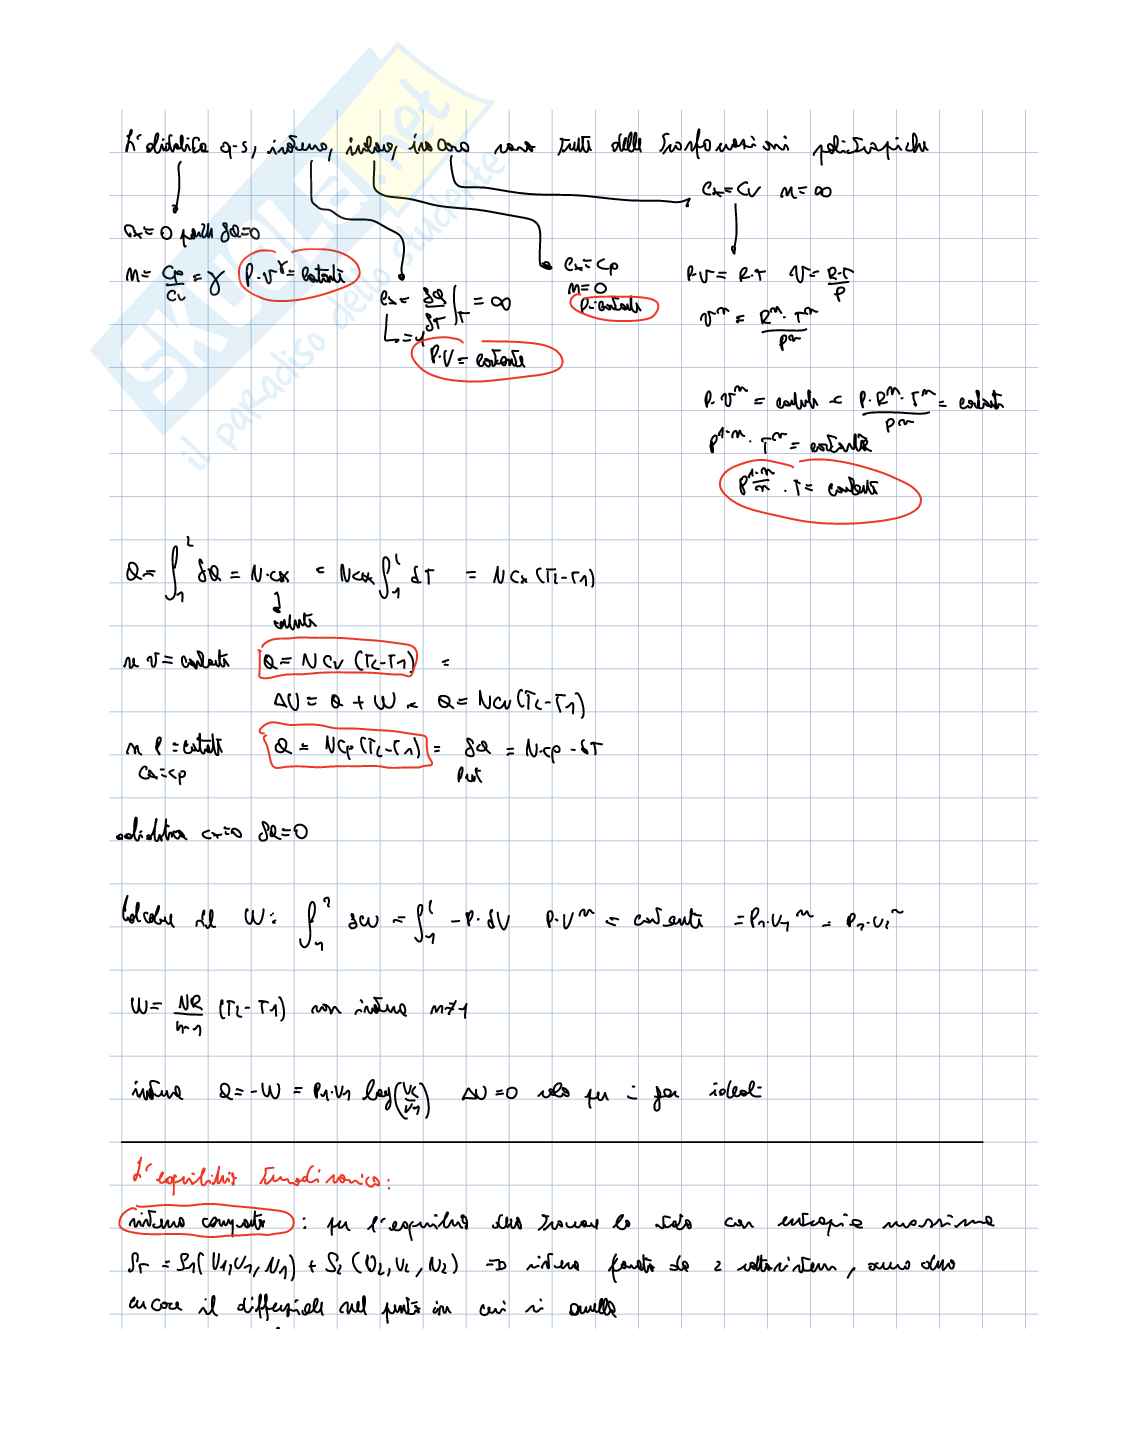 L'adiabatica q-s, isoterma, isobara, isocora sono tutte delle trasformazioni politropiche
cx = 0 perché δQ=0
n = cp/cv = γ
P·v^γ = costante
cx = δQ/δT |T = ∞
n = 1
P·V = costante
cx = cp
n = 0
P = costante
cx = cv n = ∞
P·V = R·T V = R·T/P
V^n = R^n·T^n/P^n
P·V^n = costante = P·R^n·T^n/P^n = costante
P^1-n · T^n = costante
P^1-n/n · T = costante
Q = ∫₁² δQ = N·cx = Ncx ∫₁² dT = Ncx (T2-T1)
costante
se V = costante Q = N cv (T2-T1) =
ΔU = Q + W = Q = Ncv (T2-T1)
se P = costante Q = Ncp (T2-T1) = δQ = N·cp·δT
cx = cp P cost
adiabatica cx=0 δQ=0
Calcolare il W: ∫₁² δW = ∫₁² -P·δV P·V^n = costante = P1·V1^n = P2·V2^n
W = NR/n-1 (T2-T1) non isoterma n≠1
isoterma Q = -W = P1·V1 log(V2/V1) ΔU = 0 solo per i gas ideali
L'equilibrio termodinamico:
sistema composto : per l'equilibrio devo trovare lo stato con entropia massima
ST = S1(U1,V1,N1) + S2(U2,V2,N2) => sistema formato da 2 sottosistemi, devo
cercare il differenziale nel punto in cui si annulla
SKUOLA.net
il paradiso dello studente